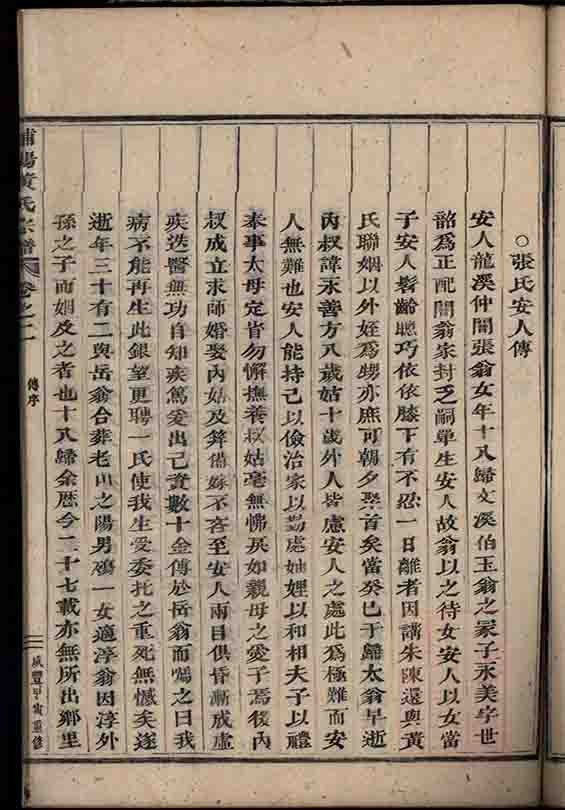 ○張氏安人傳
安人龍溪仲開張翁女年十八歸文溪伯玉翁之冢子永美字世
韶為正配開翁家封乏嗣單生安人故翁以之待女安人以女當
子安人髫齡聰巧依依膝下有不忍一日離者因講朱陳還與黃
氏聯姻以外姪為甥亦庶可朝夕聚首矣當癸巳于歸太翁早逝
內叔諱永善方八歲姑十歲外人皆慮安人之處此為極難而安
人無難也安人能持己以儉治家以勤處妯娌以和相夫子以禮
奉事太母定省勿懈撫養叔姑毫無怫戾如親母之愛子焉後內
叔成立求師婚娶內姑及笄備嫁不吝至安人兩目俱昏漸成虛
疾迭醫無功自知疾篤爰出己資數十金傳於岳翁而囑之曰我
病不能再生此銀望更聘一氏使我生受委托之重死無憾矣遂
逝年三十有二與岳翁合葬老山之陽男殤一女適淳翁因淳外
孫之子而姻及之者也十八歸余歷今二十七載亦無所出鄉里
浦陽黃氏宗譜 卷之二 傳序
咸豐甲寅重修